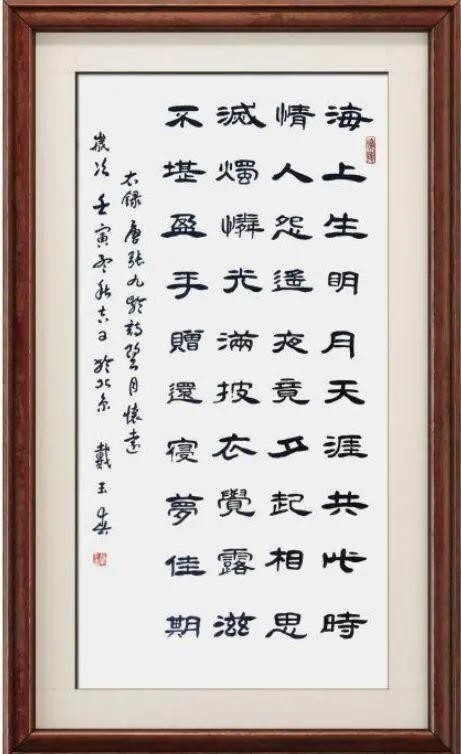 海上生明月天涯共此時
情人怨遙夜竟夕起相思
滅燭憐光滿披衣覺露滋
不堪盈手贈還寢夢佳期
右錄唐張九齡詩望月懷遠
歲次壬寅秋吉日於北京 戴玉